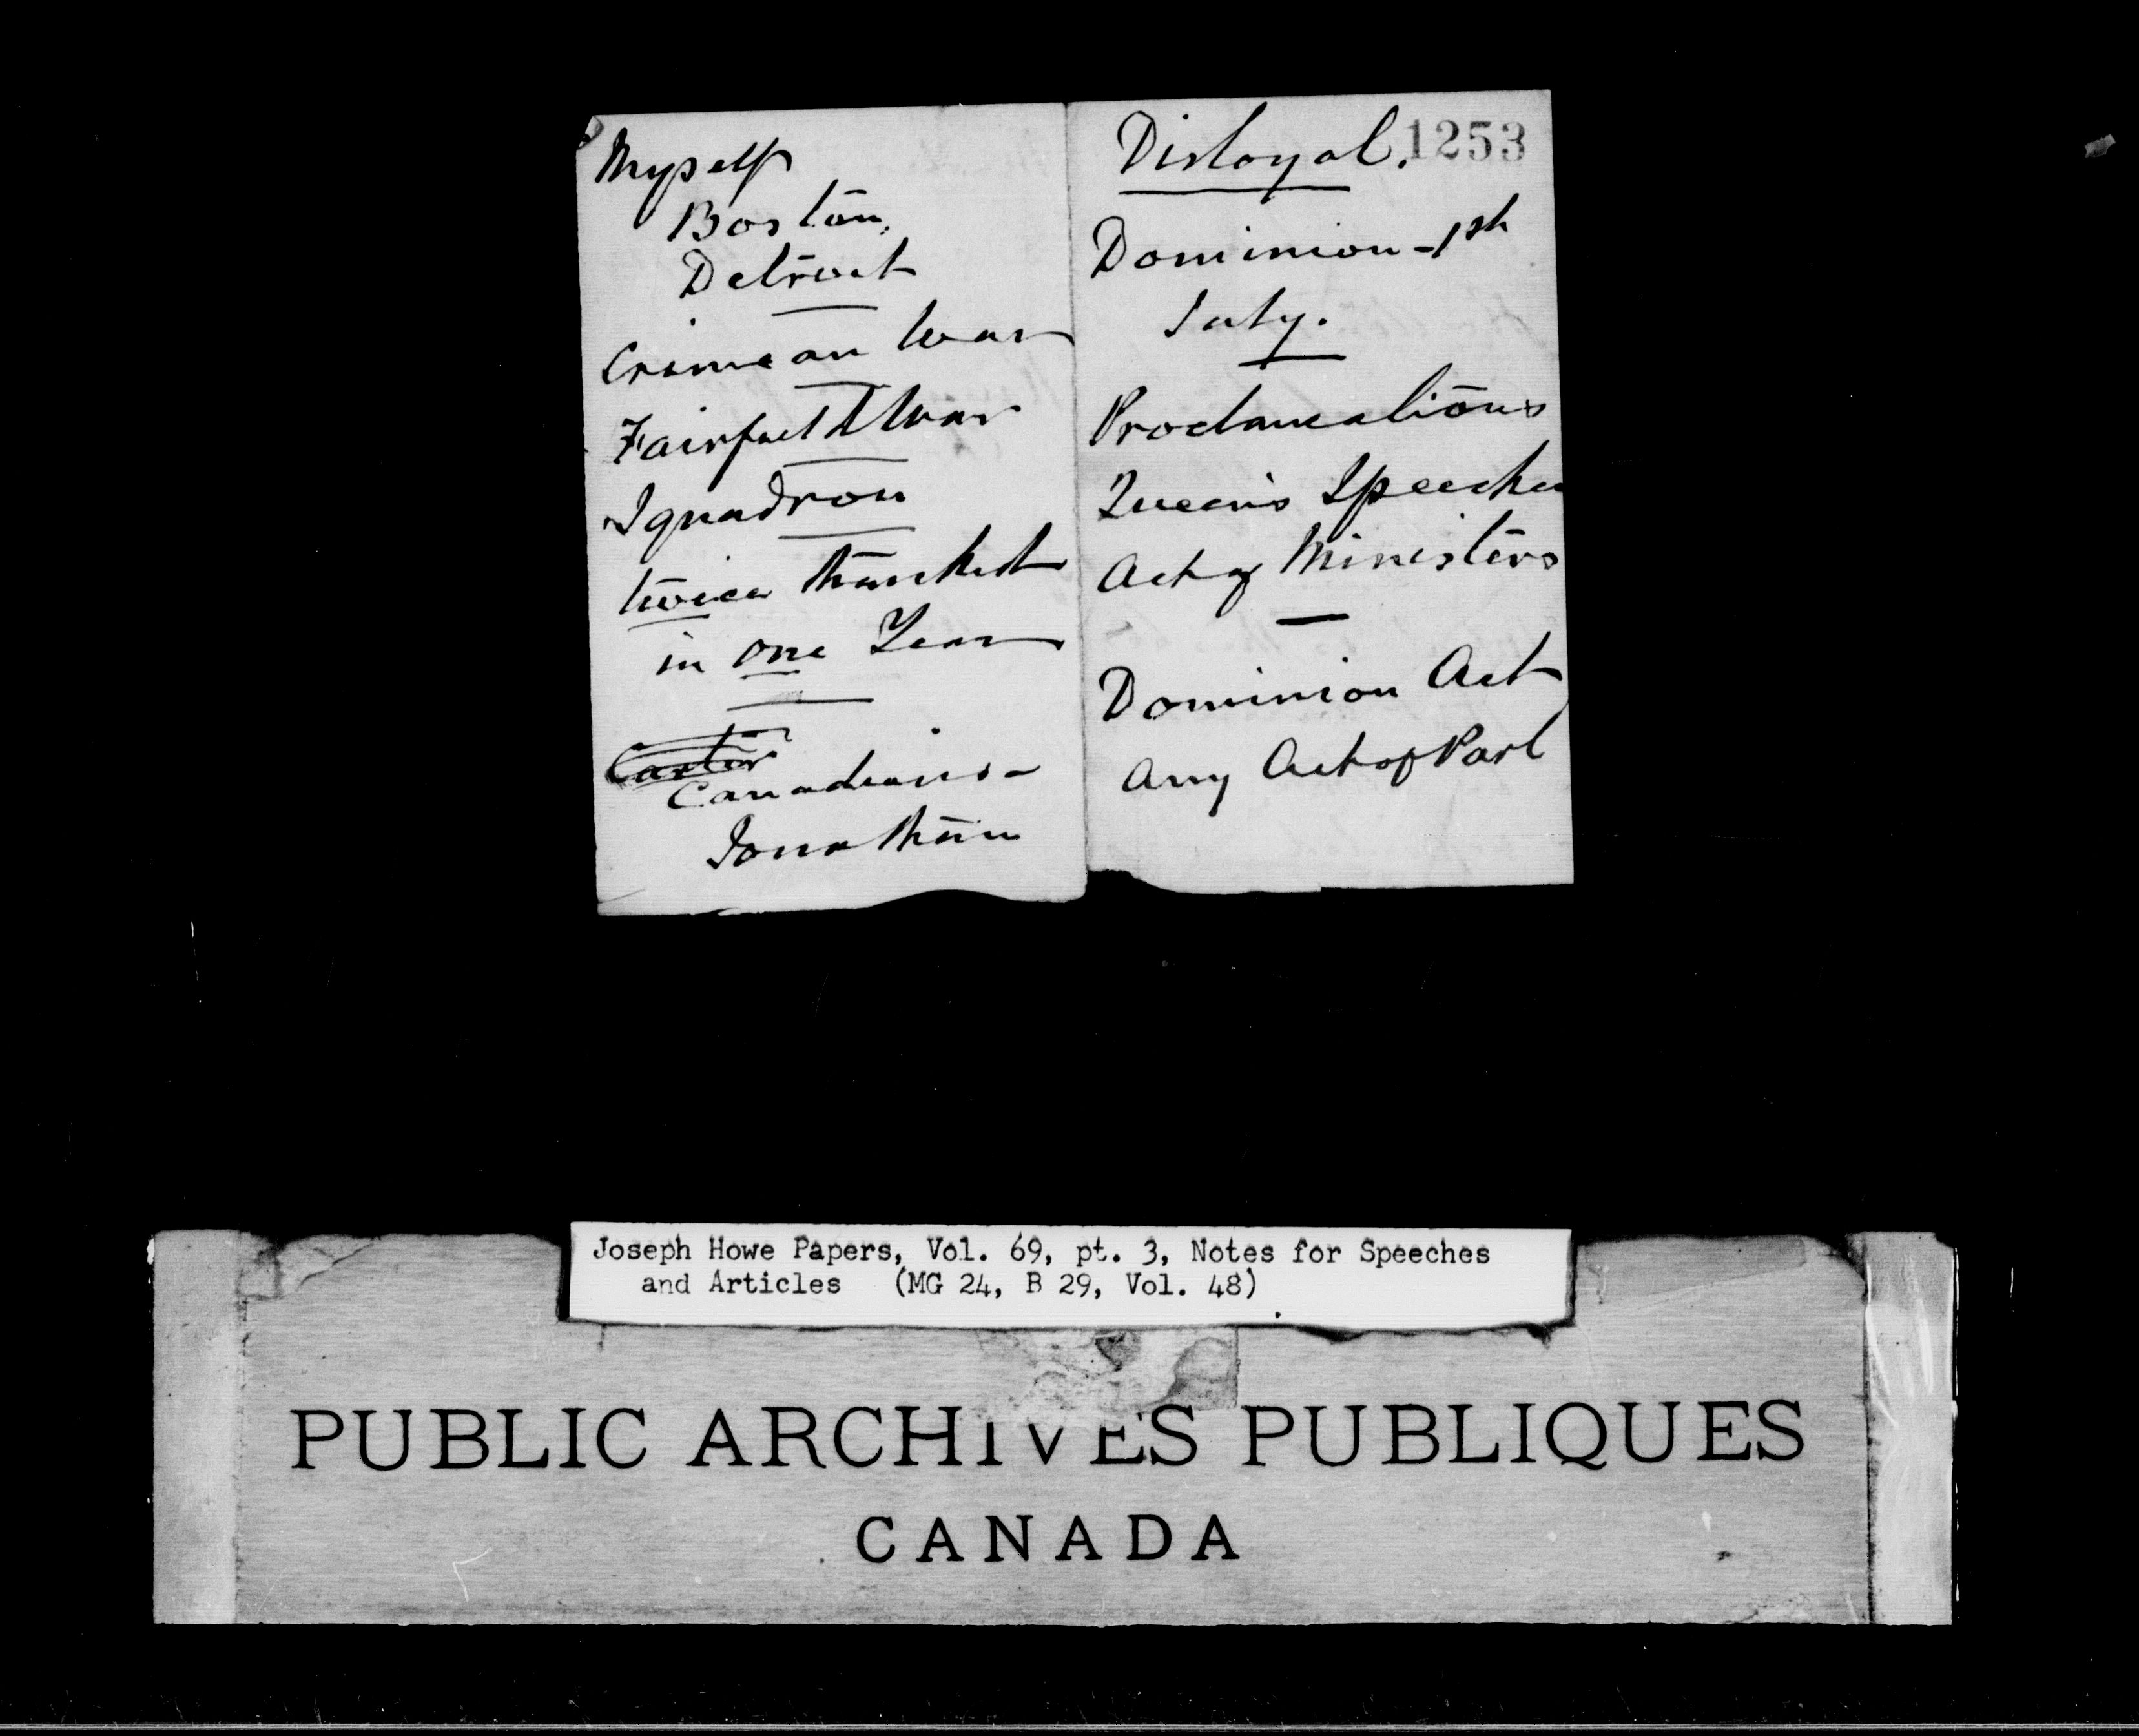 Myself
Boston,
Detroit
Crimean War
War
Squadron
twice thanked
in one Year
Cartier
Canadians -
Jonathan
Disloyal. 1253
Dominion - 1st
July.
Proclamations
Queen's Speeches
Act of Ministers
Dominion Act
Any Act of Parl
Joseph Howe Papers, Vol. 69, pt. 3, Notes for Speeches
and Articles (MG 24, B 29, Vol. 48)
PUBLIC ARCHIVES PUBLIQUES
CANADA